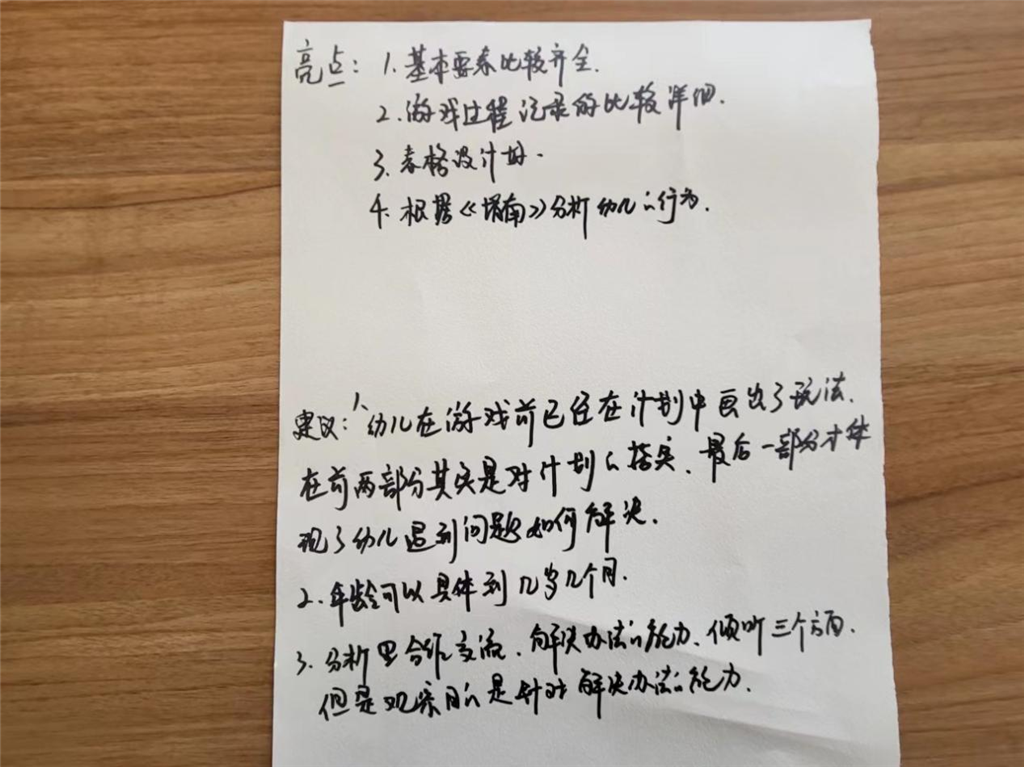 亮点：1.基本要素比较齐全.
2.游戏过程记录的比较详细.
3.表格设计好.
4.根据《指南》分析幼儿的行为.
建议：1、幼儿在游戏前已经在计划中画出了玩法.
在前两部分其实是对计划的落实、最后一部分才体
现了幼儿遇到问题如何解决.
2.年龄可以具体到几岁几个月.
3.分析里合作交流、解决办法的能力、倾听三个方面.
但是观察目的是针对解决办法的能力.